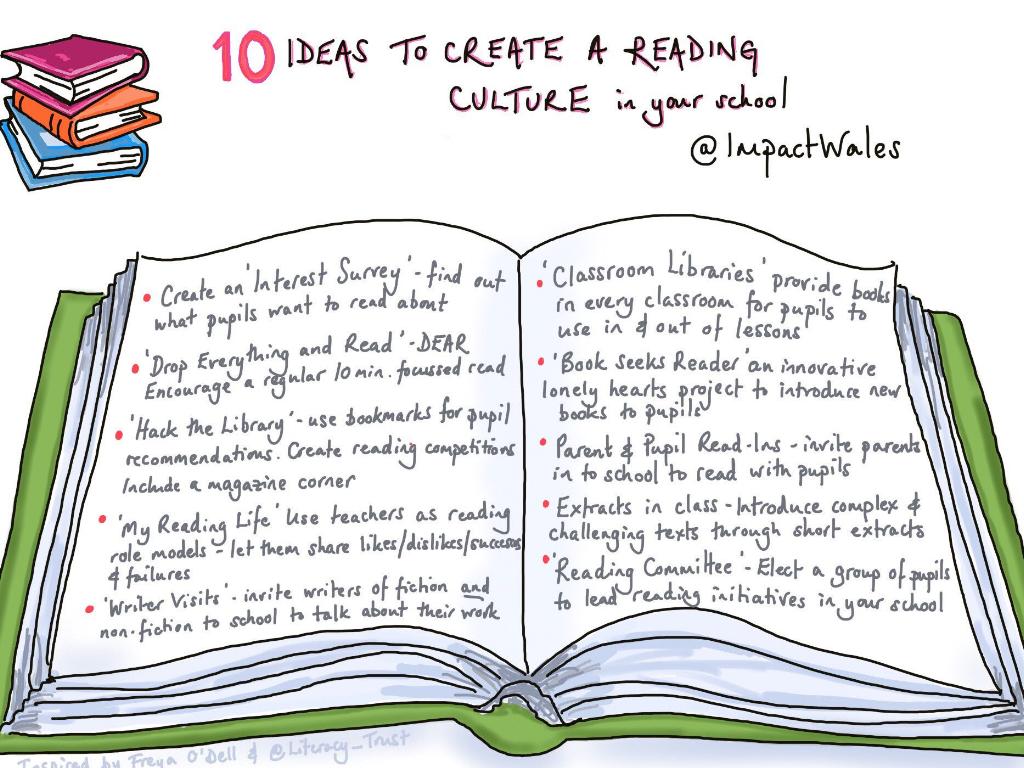 10 IDEAS TO CREATE A READING
CULTURE in your school
@ImpactWales
• Create an 'Interest Survey' - find out
what pupils want to read about
• 'Drop Everything and Read' - DEAR
Encourage a regular 10 min. focussed read
• 'Hack the Library' - use bookmarks for pupil
recommendations. Create reading competitions
Include a magazine corner
• 'My Reading Life' Use teachers as reading
role models - let them share likes/dislikes/successes
& failures
• 'Writer Visits' - invite writers of fiction and
non-fiction to school to talk about their work
• 'Classroom Libraries' provide books
in every classroom for pupils to
use in & out of lessons
• 'Book Seeks Reader' an innovative
lonely hearts project to introduce new
books to pupils
• Parent & Pupil Read-Ins - invite parents
in to school to read with pupils
• Extracts in class - Introduce complex &
challenging texts through short extracts
• 'Reading Committee' - Elect a group of pupils
to lead reading initiatives in your school
Inspired by Freya O'Dell & @Literacy_Trust